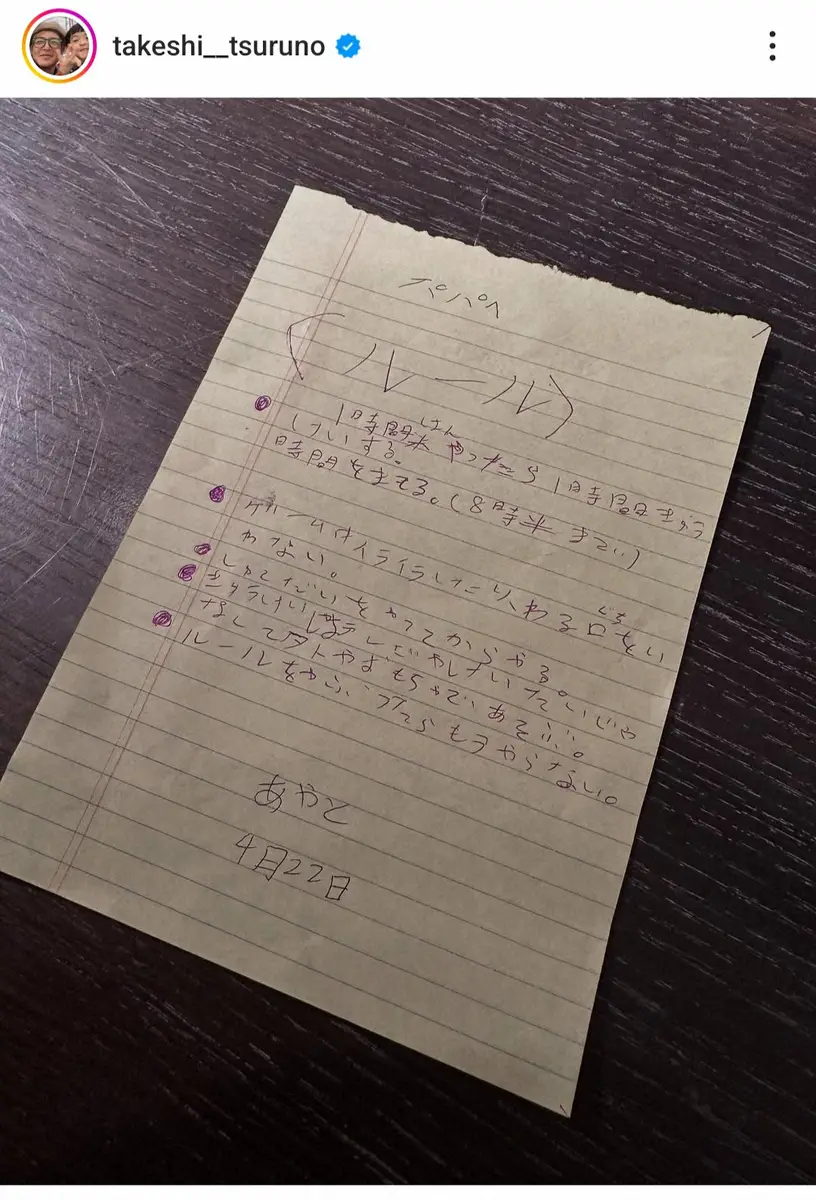 takeshi__tsuruno
パパへ
(ルール)
1時間半はんやったら1時間きゅう
けいする。
時間をきめる。(8時半まで)
ゲームはイライラしたり、わる口ぐちをい
わない。
しゅくだいをやってからやる。
きゅうけいはテレビやけいたいじゃ
なくてソトやおもちゃであそぶ。
ルールをやぶったらもうやらない。
あやと
4月22日